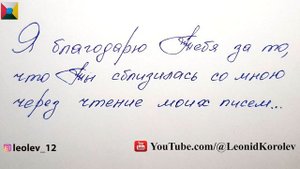 Я благодарю Тебя за то,
что Ты сблизилась со мною
через чтение моих писем...
leolev_12
YouTube.com/@LeonidKorolev